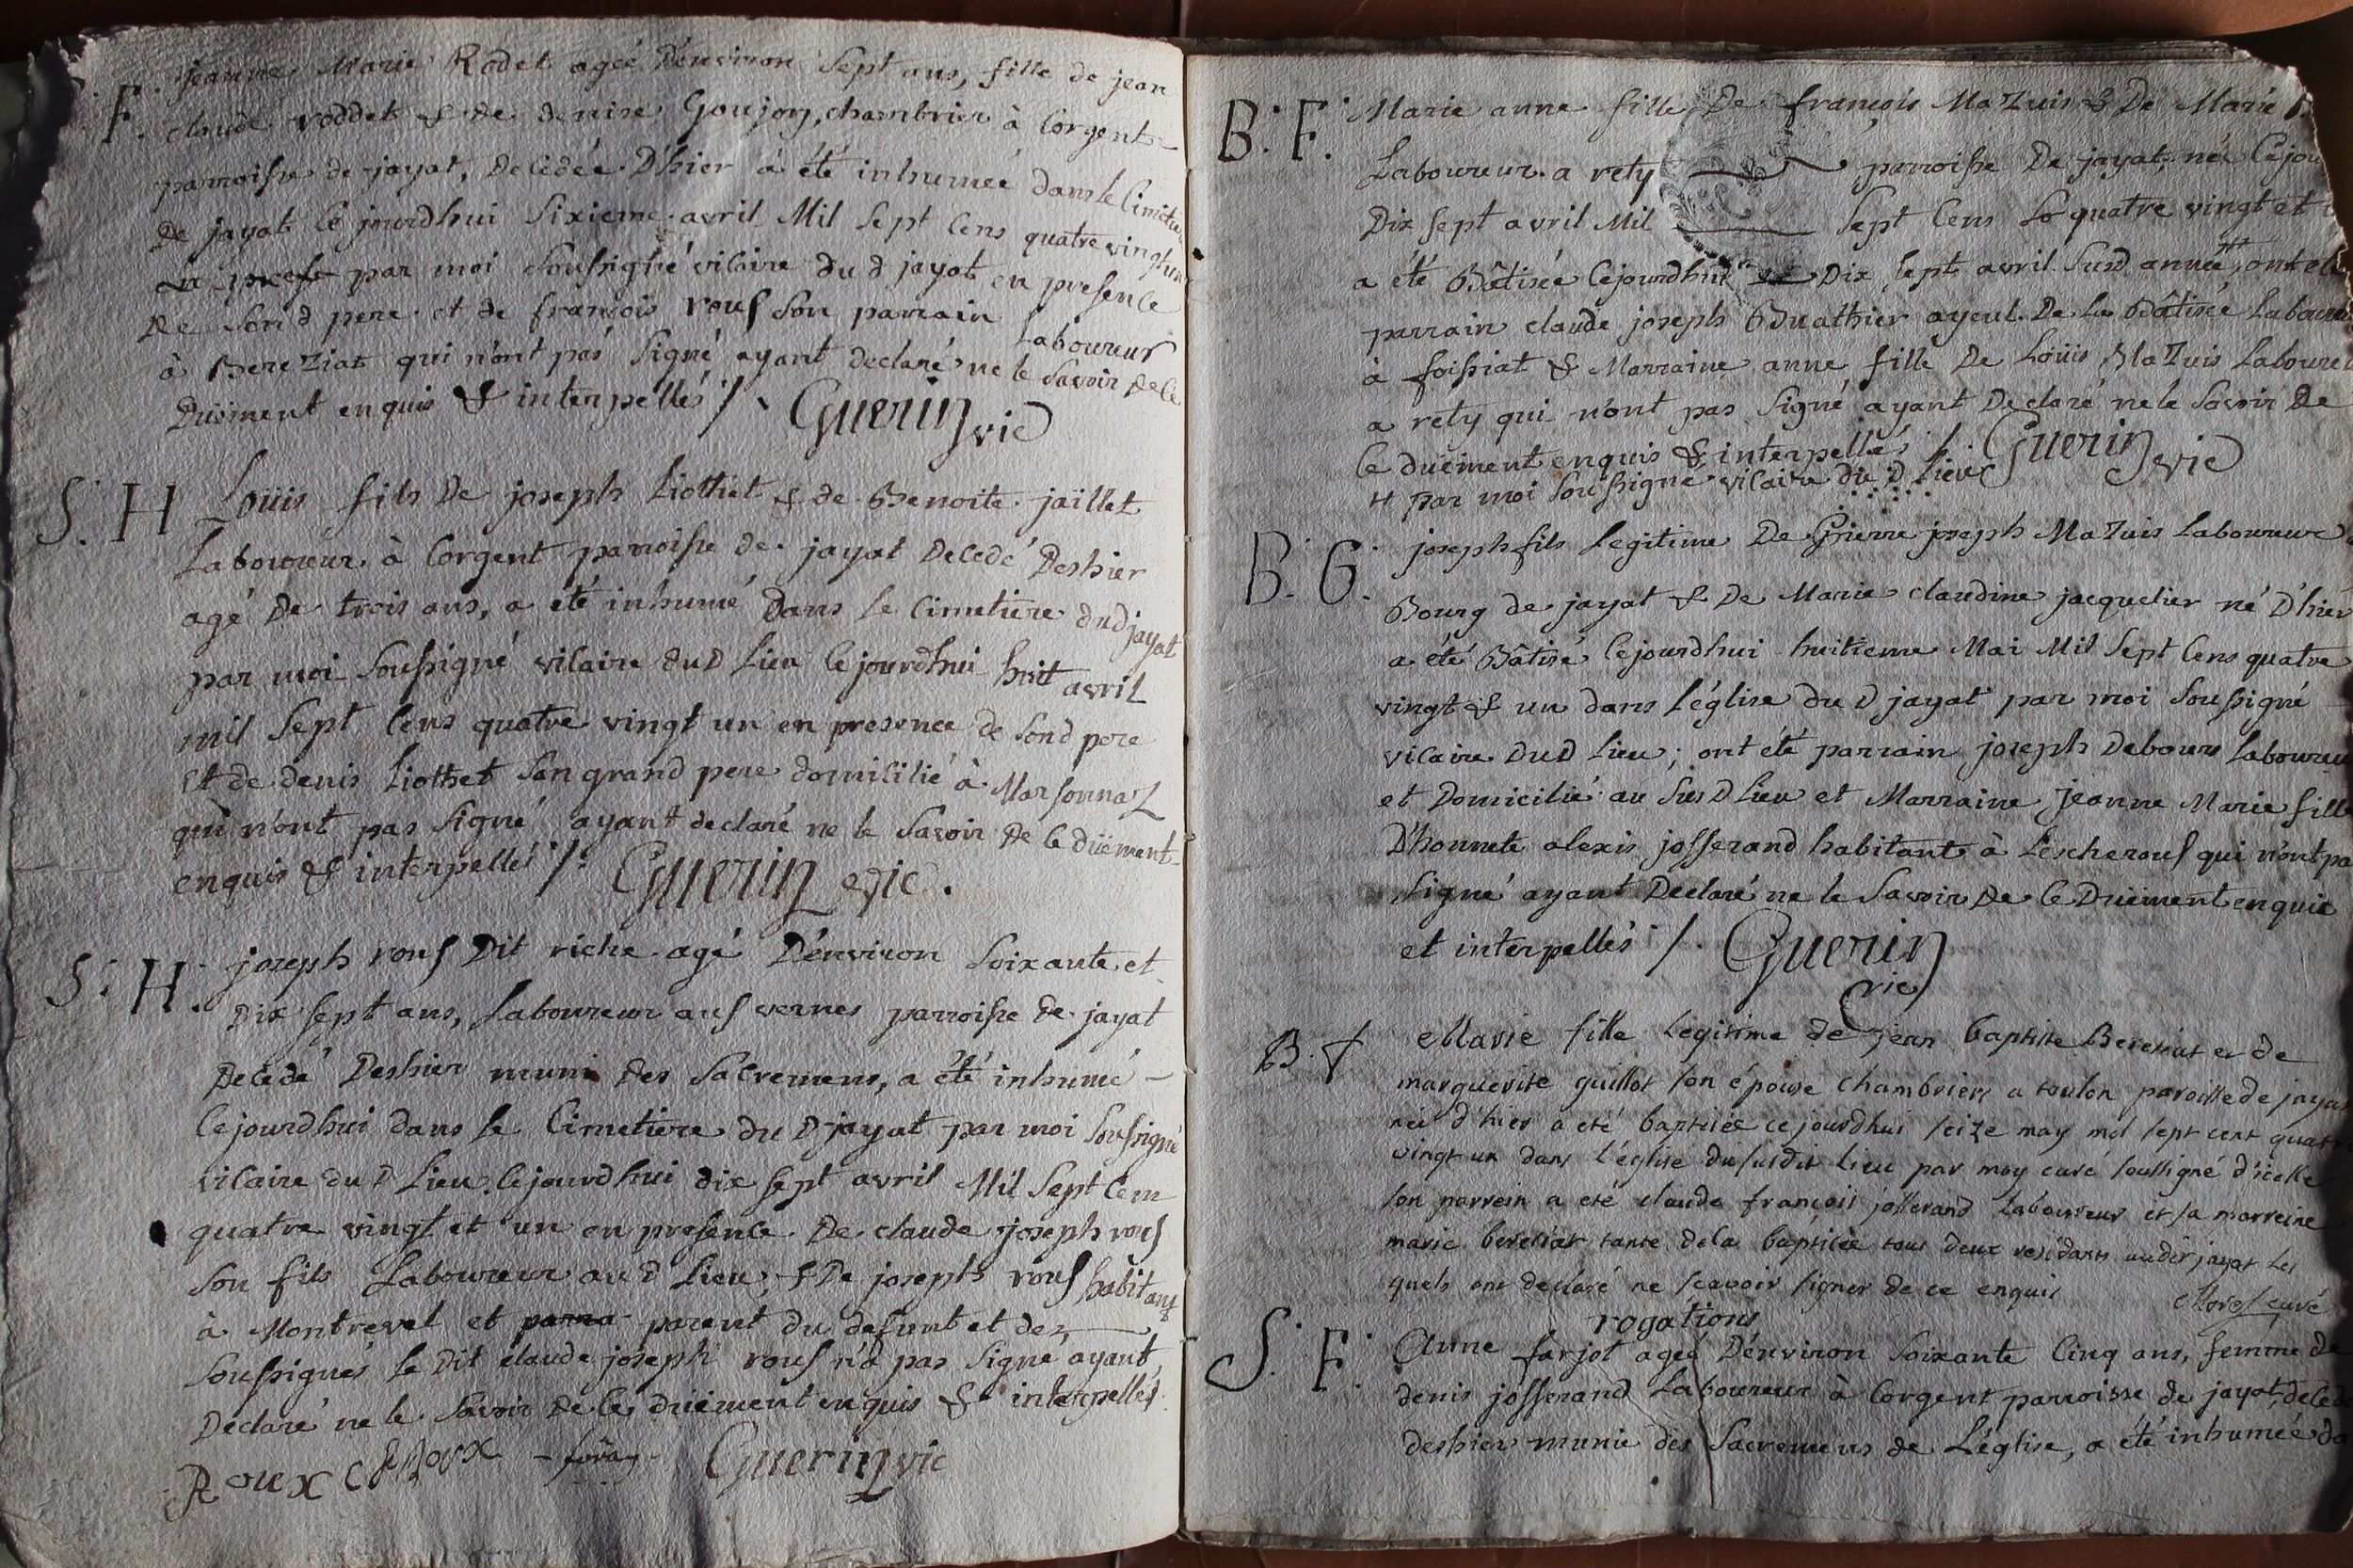 F. jeanne Marie Rodet agée D'environ Sept ans, fille de jean
claude roddet & de denise Goujon, chambrier à Corgent
parroisse de jayat, Decedée D'hier à été inhumée dans le Cimetiere
De jayat Ce jourdhui Sixieme avril Mil Sept Cens quatre vingt un
par moi Soussigné vicaire du d jayat en presence
De Son d pere et de françois rous Son parrain Laboureur
à Bereziat qui n'ont pas Signé ayant declaré ne le Savoir De Ce
Düement enquis & interpellés /. Guerin vic
S. H Loüis fils De joseph Liothet & de Benoite jaillet
Laboureur à Corgent parroisse de jayat Decedé Deshier
agé De trois ans, a été inhumé Dans le Cimetiere dud jayat
par moi Soussigné vicaire du D Lieu Cejourdhui huit avril
mil Sept Cens quatre vingt un en presence de Sond pere
Et de denis Liothet San grand pere domicilié à Marsonnaz
qui n'ont pas Signé ayant declaré ne le Savoir De Ce düement
enquis & interpellés /. Guerin vic.
S. H. joseph rous Dit riche agé D'environ Soixante et
Dix Sept ans, Laboureur aus vernes parroisse de jayat
Decedé Deshier muni des Sacremens, a été inhumé —
Cejourdhui dans le Cimetiere du D jayat par moi Soussigné
vicaire du D Lieu Cejourdhui dix Sept avril Mil Sept Cem
quatre vingt et un en presence De claude joseph rous
Son fils Laboureur au D Lieu, & De joseph rous habitant
à Montrevel et parent du defunt et des
Soussignés le Dit claude joseph rous n'a pas Signé ayant
Declaré ne le Savoir De Ce düement enquis & interpellés
Roux C Guerin vic
B. F. Marie anne fille De françois Mazuis & De Marie
Laboureur a rety parroisse De jayat, née Cejour
Dix Sept avril Mil Sept Cens quatre vingt et
a été Bâtisée Cejourdhui Dix Sept avril Susd année, ont été
parrain claude joseph Buathier ayeul De la Bâtisée Laboureur
à foissiat & Marraine anne fille De Loüis Mazuis Laboureur
a rety qui n'ont pas Signé ayant Declaré ne le Savoir De
Ce düement enquis & interpellés /. Guerin vic
par moi Soussigné vicaire du D Lieu
B. G. joseph fils Legitime De Pierre joseph Mazuis Laboureur
Bourg de jayat & De Marie claudine jacquelier né D'hier
a été Bâtisé Cejourdhui huitieme Mai Mil Sept Cens quatre
vingt & un dans l'église du D jayat par moi Soussigné
vicaire Du D Lieu; ont été parrain joseph Debours Laboureur
et Domicilié au Sus D Lieu et Marraine jeanne Marie fille
D'honnete alexis josserand habitant à Lescherous qui n'ont pa
Signé ayant Declaré ne le Savoir De Ce Düement enquis
et interpellés /. Guerin
vic
B. f Marie fille Legitime de jean baptiste Beresiat et de
marguerite guillot son épouse chambrier a toulon paroisse de jayat
née d'hier a eté baptisée ce jourdhui seize may mil sept cent quatre
vingt un dans l'église du susdit lieu par moy curé soussigné d'icelle
son parrein a eté claude françois josserand laboureur et sa marreine
marie beresiat tante de la baptisée tous deux residants audit jayat les
quels ont declaré ne scavoir signer de ce enquis
curé
rogations
S. F. Anne farjot ageé D'environ Soixante Cinq ans, femme de
denis josserand Laboureur à Corgent parroisse de jayat, decedé
deshier munie des Sacremens de L'église, a été inhumée da